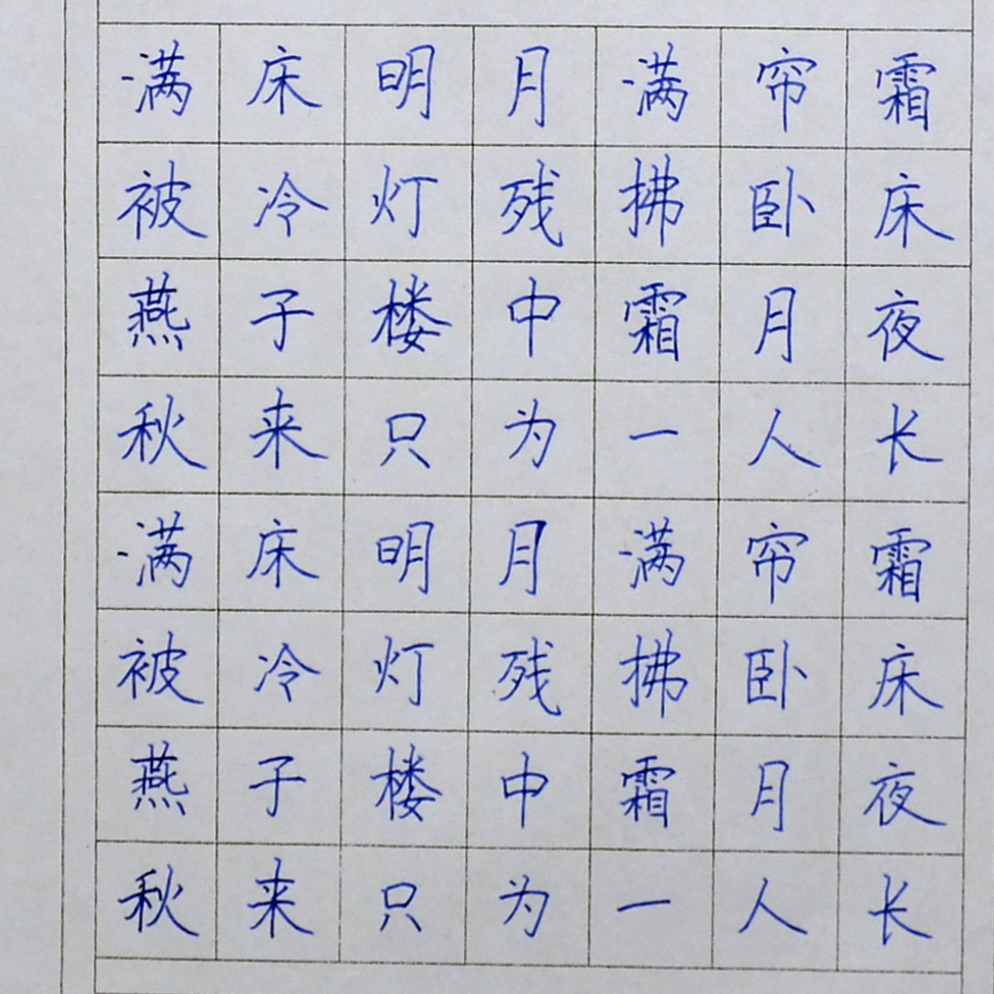 满床明月满帘霜
被冷灯残拂卧床
燕子楼中霜月夜
秋来只为一人长
满床明月满帘霜
被冷灯残拂卧床
燕子楼中霜月夜
秋来只为一人长